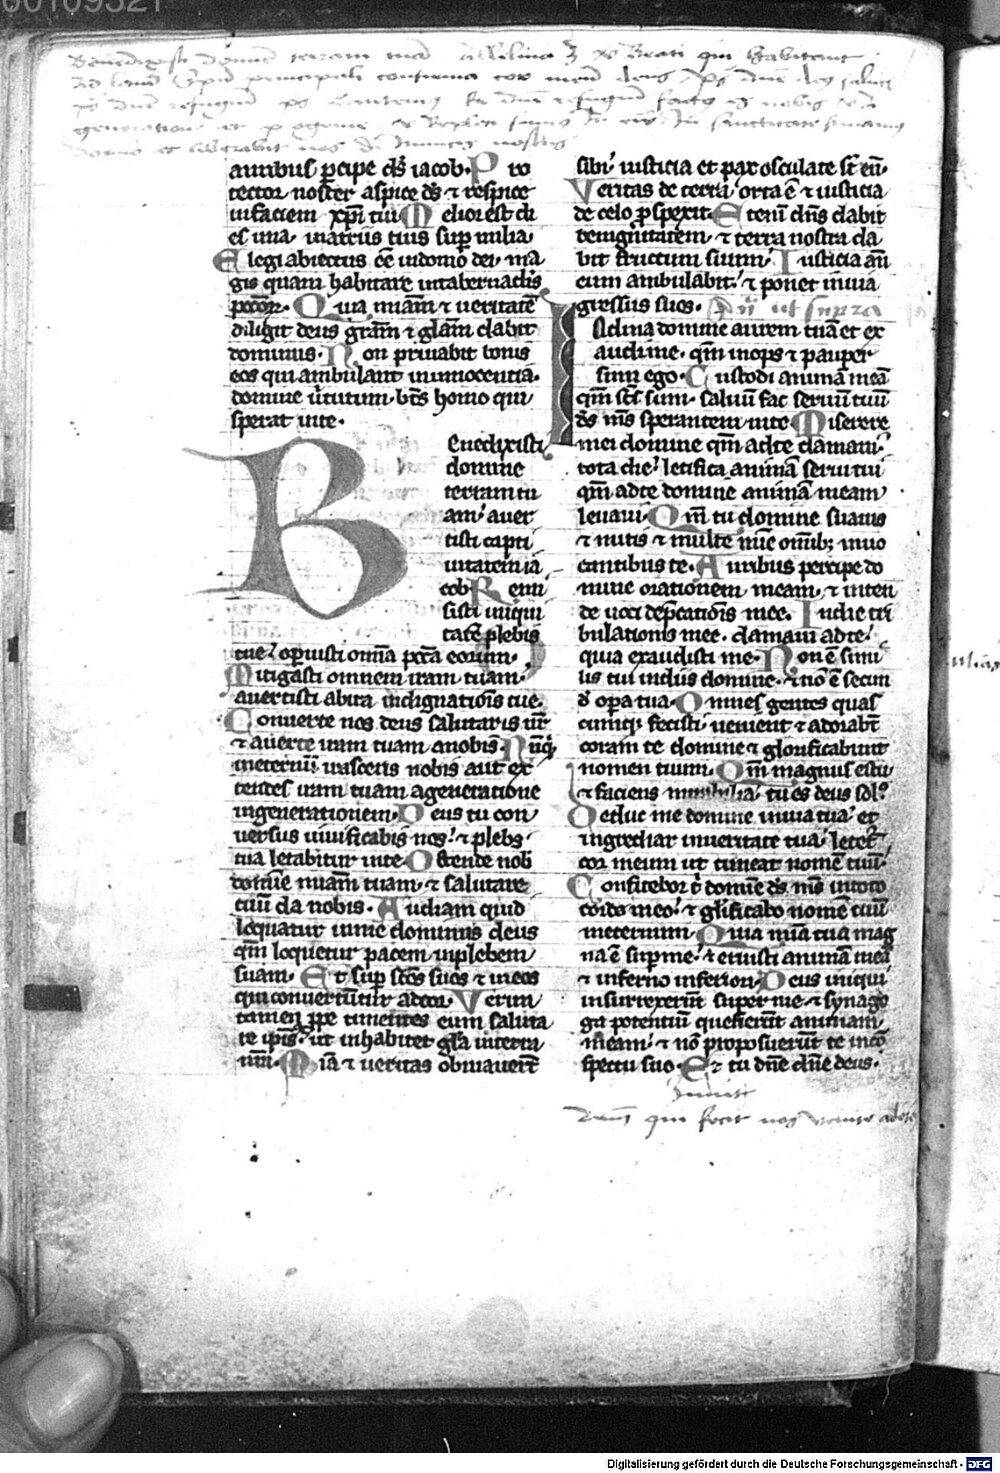 Benedixisti domine terram tuam alleluia Beati qui habitant
principali confirma cor meum deus
refugium factus es nobis
generatione et
auribus ꝑcipe ds̄ iacob· Pro
tector noster aspice ds̄ ⁊ respice
infaciem xp̄i tui Melior est di
es una· inatriis tuis sup̄ milia·
Elegi abiectus ēe indomo dei· ma
gis quam habitare intabernaclis
pctōꝝ· Quia miām ⁊ ueritatē
diligit deus grām ⁊ glām dabit
dominus· Non priuabit bonis
eos qui ambulant ininnocentia·
domine uirtutum· bt̄s homo qui
sperat inte·
Benedixisti
domine
terram tu
am· auer
tisti capti
uitatem ia
cob Remi
sisti iniqui
tatē plebis
tue· opuisti omīa pccā eorum·
Mitigasti omnem iram tuam·
auertisti abira indignationis tue·
Conuerte nos deus salutaris nr̄
⁊ auerte iram tuam anobis· Nūq̄
ineternū irasceris nobis aut ex
tendes iram tuam ageneratione
ingenerationem· Deus tu con
uersus uiuificabis nos· ⁊ plebs
tua letabitur inte· Ostende nob̄
domīe miām tuam· ⁊ salutare
tuū da nobis· Audiam quid
loquatur inme dominus deus
qm̄ loquetur pacem inplebem
suam· Et sup̄ scōs suos ⁊ ineos
qui conuertūtur adcor· Verum
tamen ꝓpe timentes eum saluta
re ipīs· ut inhabitet glā interra
nr̄a· Miā ⁊ ueritas obuiauerūt
sibi· iusticia et pax osculate sūt
Veritas de terra orta ē ⁊ iusticia
de celo ꝓspexit· Etenī dn̄s dabit
benignitatem· ⁊ terra nostra da
bit fructum suum· Iusticia an̄
eum ambulabit· ⁊ ponet inuia
gressus suos· ut supra
Inclina domine aurem tuā et ex
audi me· qm̄ inops ⁊ pauper
sum ego· Custodi animā meā
qm̄ scs̄ sum· saluū fac seruū tuū
ds̄ ms̄ sperantem inte Miserere
mei domine qm̄ adte clamaui·
tota die· letifica animā serui tui
qm̄ adte domine animā meam
leuaui· Qm̄ tu domine suauis
⁊ mitis ⁊ multe mīe omīb; inuo
cantibus te· Auribus percipe do
mine orationem meam· ⁊ inten
de uoci dep̄cationis mee· Indie tri
bulationis mee· clamaui adte·
quia exaudisti me· Non ē simi
lis tui indiis domine· ⁊ nō ē secun
d̄ opera tua· Omnes gentes quas
cūnq; fecisti· uenient ⁊ adorabūt
coram te domine ⁊ glorificabunt
nomen tuum· Qm̄ magnus es tu
⁊ faciens mirabilia· tu es deus sol·
Deduc me domine inuia tua· et
ingrediar inueritate tua· letet̄
cor meum ut timeat nomē tuū·
Confitebor t̄ domīe ds̄ ms̄ intoto
corde meo· ⁊ glificabo nomē tuū
ineternum· Quia mīa tua mag
na ē sup̄me· ⁊ eruisti animā meā
⁊ inferno inferiori· Deus iniqui
insurrexerūt super me ⁊ synago
ga potentiū quesierūt animam
meam· ⁊ nō proposuerūt te incō
spectu suo· Et tu dn̄e dn̄e deus·
qui fecit nos venite
Digitalisierung gefördert durch die Deutsche Forschungsgemeinschaft - DFG